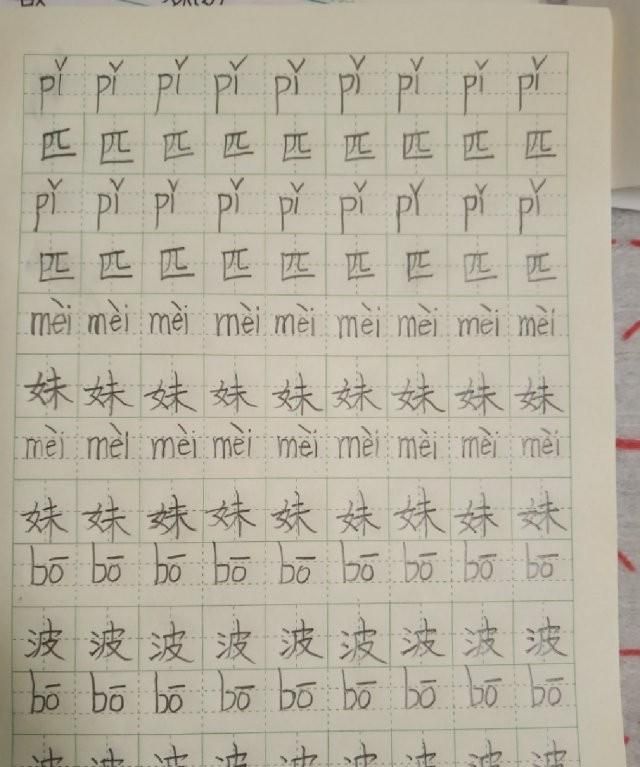 pǐ pǐ pǐ pǐ pǐ pǐ pǐ pǐ pǐ
匹 匹 匹 匹 匹 匹 匹 匹 匹
pǐ pǐ pǐ pǐ pǐ pǐ pǐ pǐ pǐ
匹 匹 匹 匹 匹 匹 匹 匹 匹
mèi mèi mèi mèi mèi mèi mèi mèi mèi
妹 妹 妹 妹 妹 妹 妹 妹 妹
mèi mèi mèi mèi mèi mèi mèi mèi mèi
妹 妹 妹 妹 妹 妹 妹 妹 妹
bō bō bō bō bō bō bō bō bō
波 波 波 波 波 波 波 波 波
bō bō bō bō bō bō bō bō bō
波 波 波 波 波 波 波 波 波